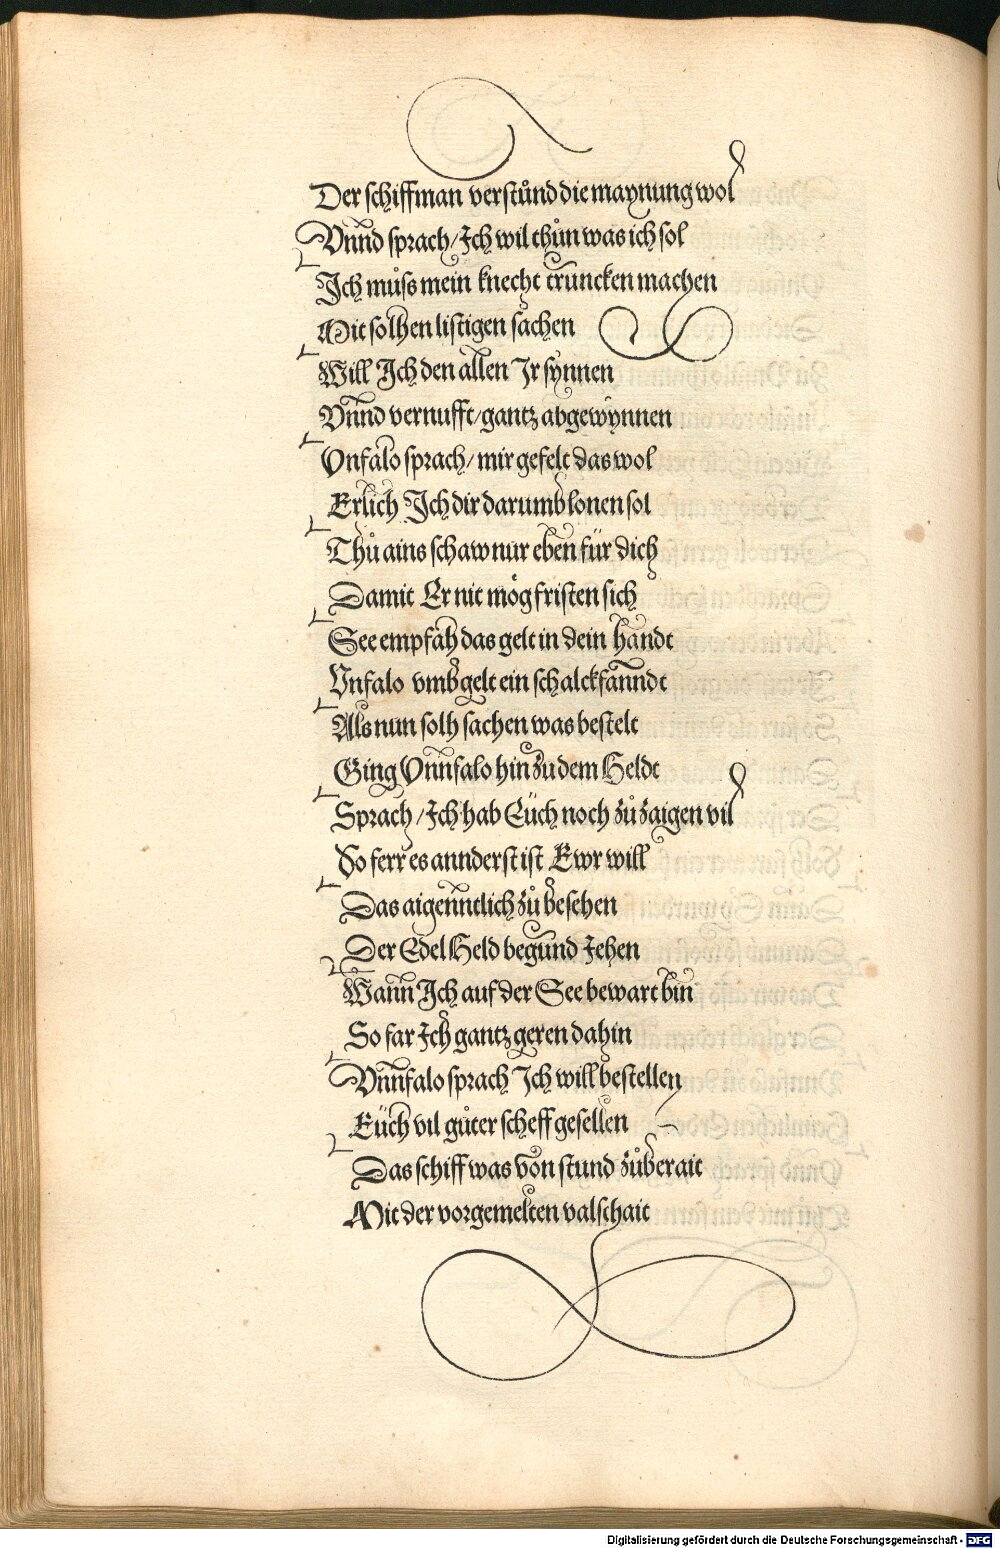 Der schiffman verstůnd die maynung wol
Vnnd sprach/ Ich wil thůn was ich sol
Ich můss mein knecht truncken machen
Mit solhen listigen sachen
Will Ich den allen Ir synnen
Vnnd vernufft/ gantz abgewynnen
Vnfalo sprach/ mir gefelt das wol
Erlich Ich dir darumb lonen sol
Thů ains schaw nur eben für dich
Damit Er nit mög fristen sich
See empfäh das gelt in dein handt
Vnfalo vmb gelt ein schalck fanndt
Als nun solh sachen was bestelt
Ging Vnnfalo hin zu dem Heldt
Sprach/ Ich hab Eüch noch zů zaigen vil
So ferr es annderst ist Ewr will
Das aigenntlich zů besehen
Der Edel Held begund Jehen
Wann Ich auf der See bewart bin
So far Ich gantz geren dahin
Vnnfalo sprach Ich will bestellen
Eüch vil gůter scheff gesellen
Das schiff was von stund zůberait
Mit der vorgemelten valschait
Digitalisierung gefördert durch die Deutsche Forschungsgemeinschaft - DFG